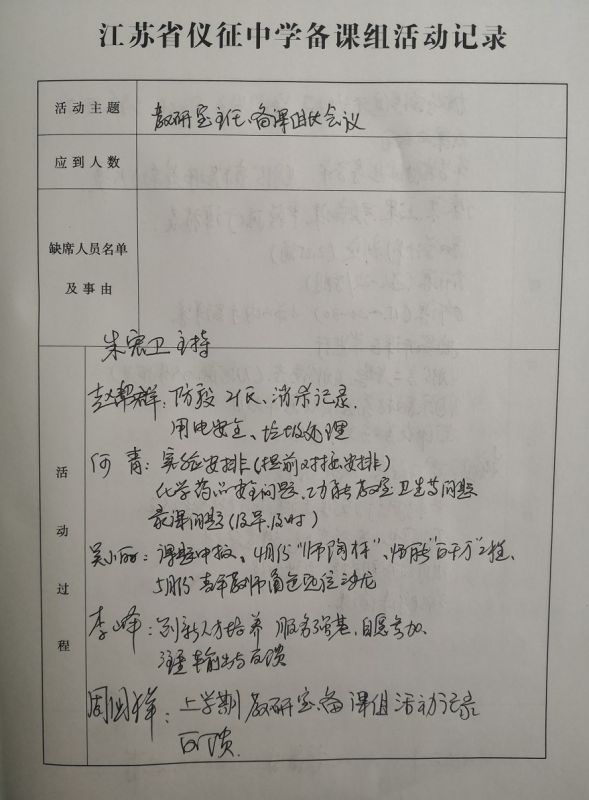 江苏省仪征中学备课组活动记录
活动主题
教研室主任、备课组长会议
应到人数
缺席人员名单
及事由
活动过程
朱宏卫主持
赵帮群：防疫工作、消杀记录.
用电安全、垃圾处理
何青：实验安排(提前对接安排)
化学药品安全问题、功能教室卫生等问题
录课问题(及早、及时)
吴小丽：课题申报、4月份“师陶杯”、“百千万”工程、
5月份青年教师角色定位沙龙
李峰：创新人才培养 服务强基、自愿参加、
注重输出与反馈
周国祥：上学期教研室、备课组活动记录
反馈.